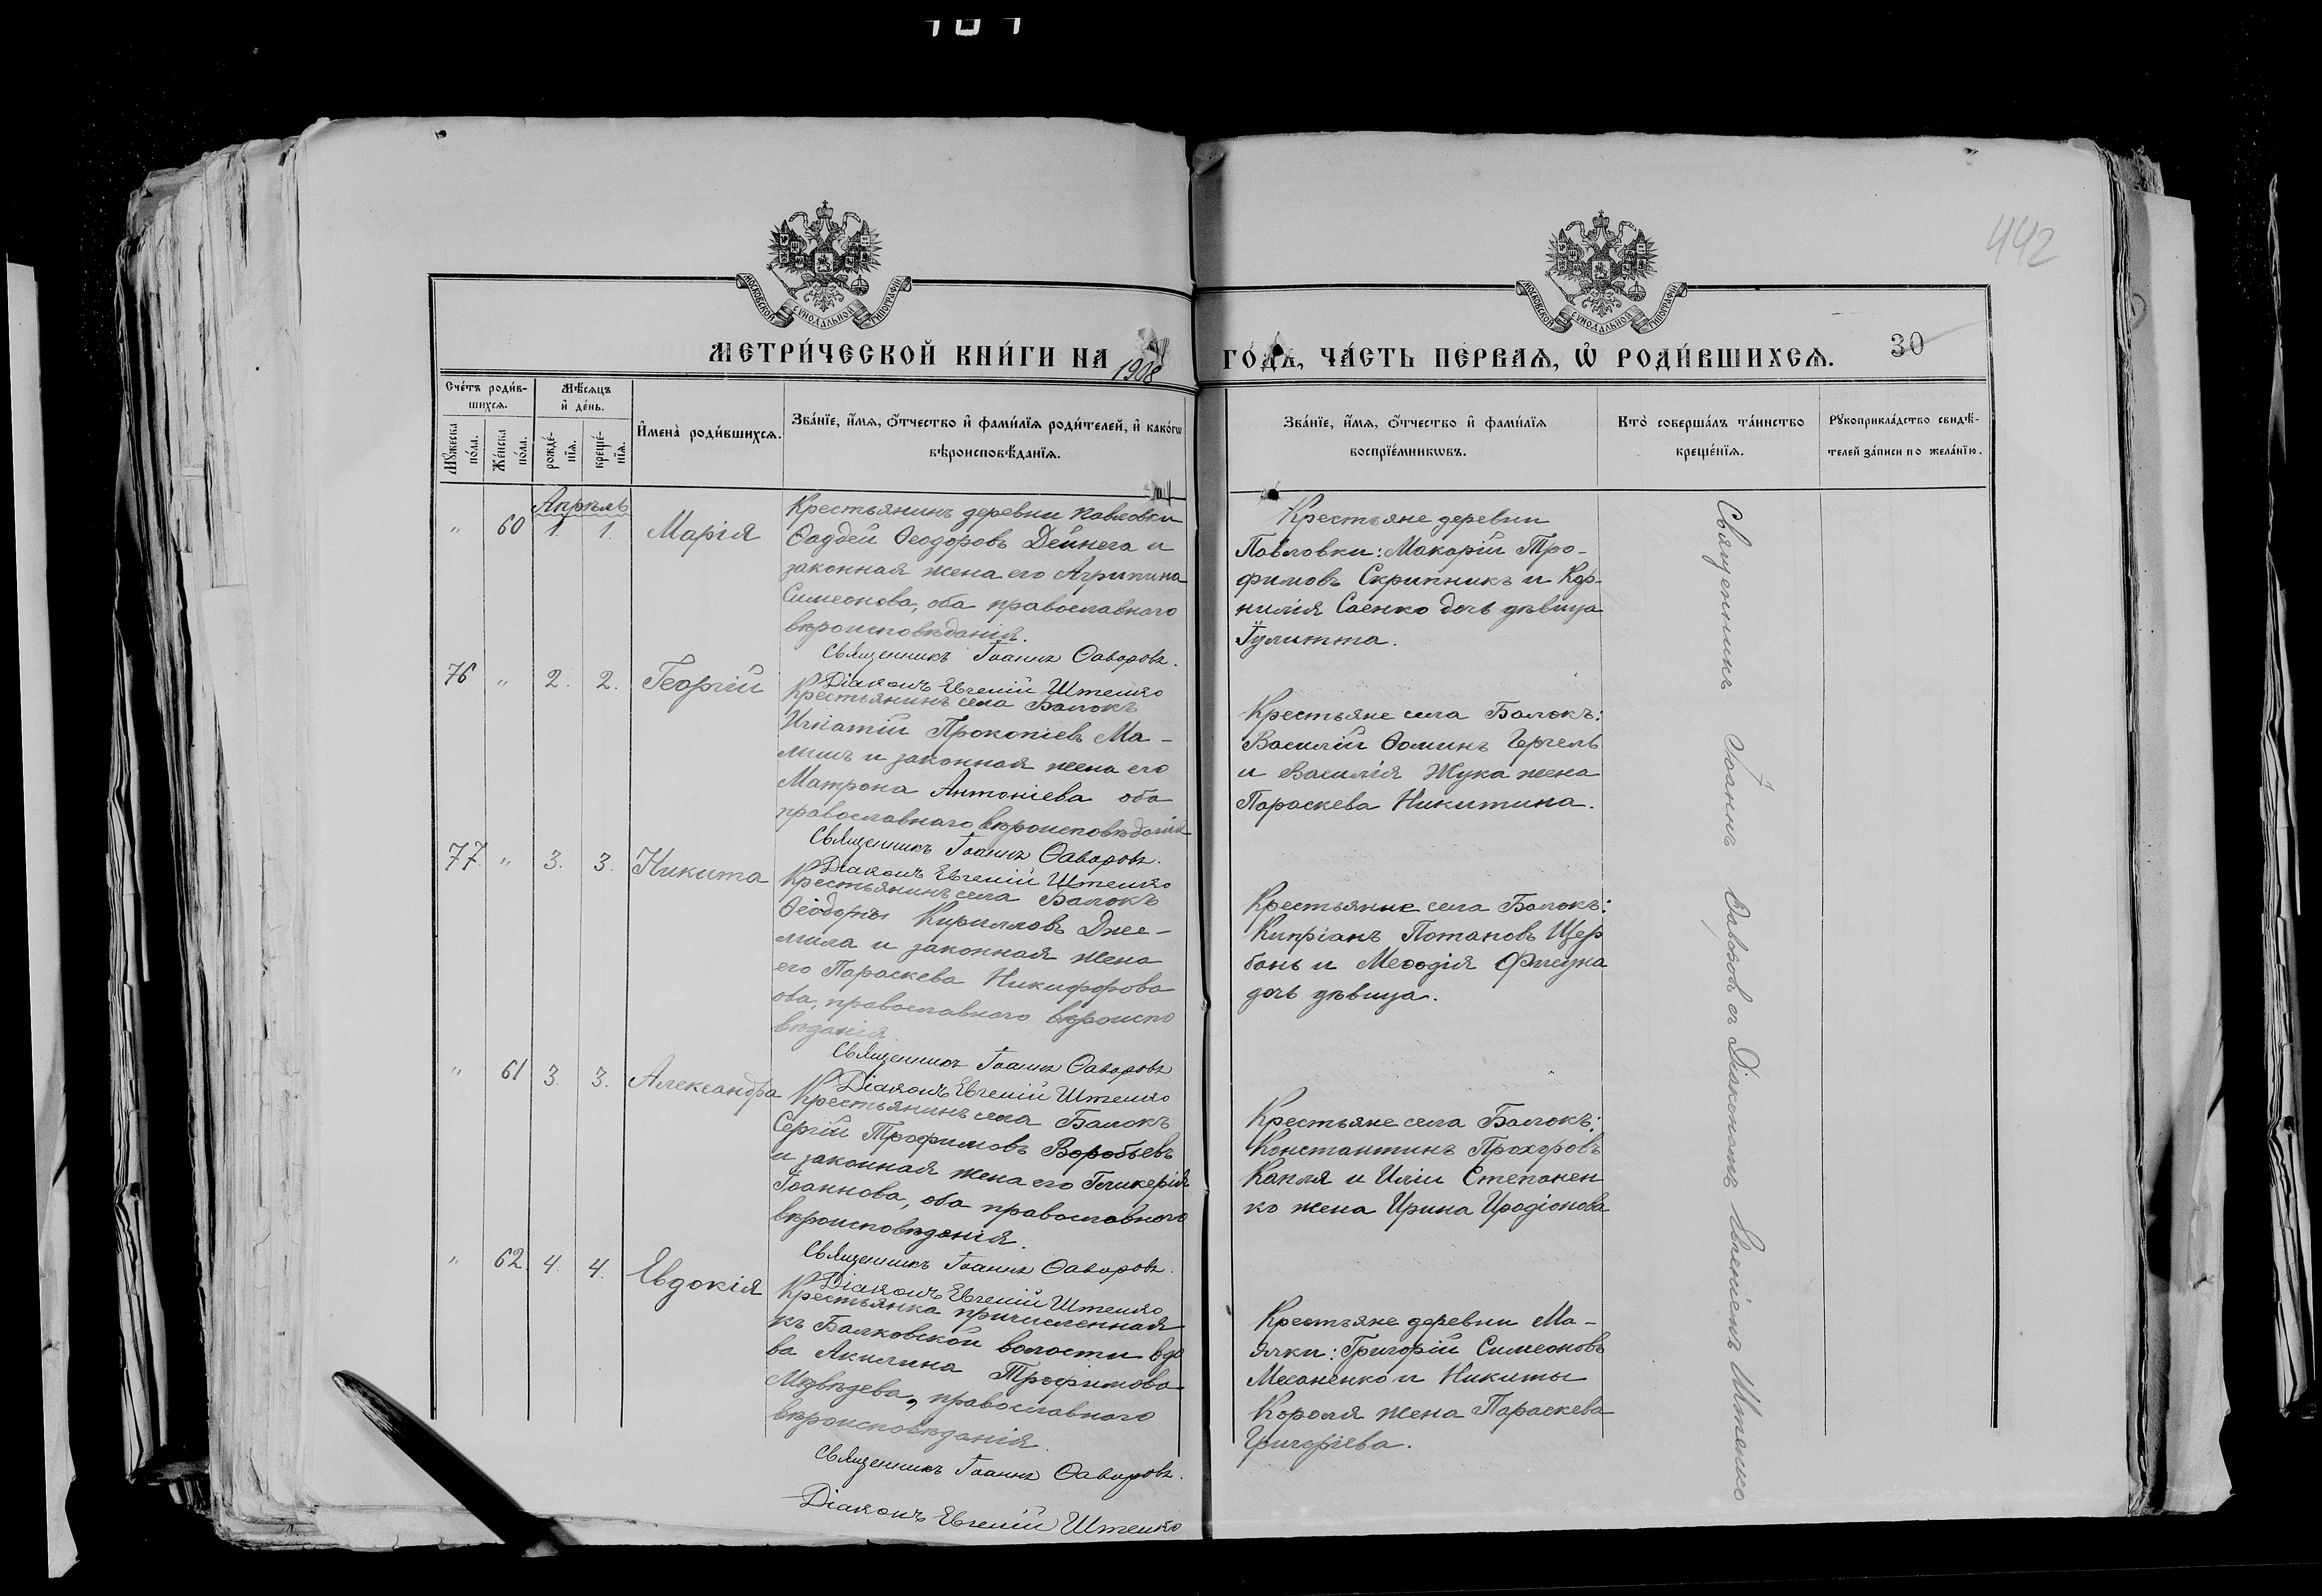 442
МОСКОВСКОЙ СУНОДАЛЬНОЙ ТИПОГРАФІИ
МОСКОВСКОЙ СУНОДАЛЬНОЙ ТИПОГРАФІИ
МЕТРИ́ЧЕСКОЙ КНИ́ГИ НА 1908 ГО́ДЪ, ЧА́СТЬ ПЕ́РВАѦ, Ѡ҆ РОДИ́ВШИХСѦ.
30
Сче́тъ роди́в-
шихсѧ.
Мꙋ́жеска
по́ла.
Же́нска
по́ла.
Мѣ́сѧцъ
и҆ де́нь.
рожде́-
нїѧ.
креще́-
нїѧ.
И҆мена̀ роди́вшихсѧ.
Зва́нїе, и҆́мѧ, ѻ҆́тчество и҆ фами́лїѧ роди́телей, и҆ како́гѡ
вѣроисповѣ́данїѧ.
Зва́нїе, и҆́мѧ, ѻ҆́тчество и҆ фами́лїѧ
воспрїе́мникѡвъ.
Кто̀ соверша́лъ та́инство
креще́нїѧ.
Рꙋкоприкла́дство свидѣ́-
телей за́писи по жела́нїю.
Апрѣль
" 60 1. 1. Марія
Крестьянинъ деревни Павловки
Ѳаддей Ѳеодоровъ Дейнега и
законная жена его Агрипина
Симеонова, оба православнаго
вѣроисповѣданія.
Священникъ Іоаннъ Ѳаворовъ.
Діаконъ Евгеній Штепко
Крестьяне деревни
Павловки: Макарій Тро-
фимовъ Скрипникъ и Кор-
нилія Саенко дочь дѣвица
Іулитта.
76 " 2. 2. Георгій
Крестьянинъ села Балокъ
Игнатій Прокопіевъ Ма-
лишъ и законная жена его
Матрона Антоніева оба
православнаго вѣроисповѣданія
Священникъ Іоаннъ Ѳаворовъ.
Діаконъ Евгеній Штепко
Крестьяне села Балокъ:
Василій Ѳоминъ Гергель
и Василія Жука жена
Параскева Никитина.
77. " 3. 3. Никита
Крестьянинъ села Балокъ
Ѳеодоръ Кирилловъ Дже-
мила и законная жена
его Параскева Никифорова
оба, православнаго вѣроиспо
вѣданія.
Священникъ Іоаннъ Ѳаворовъ
Діаконъ Евгеній Штепко
Крестьяне села Балокъ:
Кипріанъ Потаповъ Щер
бань и Меѳодія
дочь дѣвица.
" 61 3. 3. Александра
Крестьянинъ села Балокъ
Сергій Трофимовъ Воробьевъ
и законная жена его Гликерія
Іоаннова, оба православнаго
вѣроисповѣданія.
Священникъ Іоаннъ Ѳаворовъ.
Діаконъ Евгеній Штепко
Крестьяне села Балокъ:
Константинъ Прохоровъ
Капля и Иліи Степанен
ко жена Ирина Иродіонова
" 62. 4. 4. Евдокія
Крестьянка причисленная
къ Балковской волости вдо
ва Акилина Трофимова
Медвѣдева, православнаго
вѣроисповѣданія.
Священникъ Іоаннъ Ѳаворовъ.
Діаконъ Евгеній Штепко
Крестьяне деревни Ма-
ячки: Григорій Симеоновъ
Месаненко и Никиты
Короля жена Параскева
Григоріева.
Священникъ Іоаннъ Ѳаворовъ съ Діакономъ Евгеніемъ Штепко